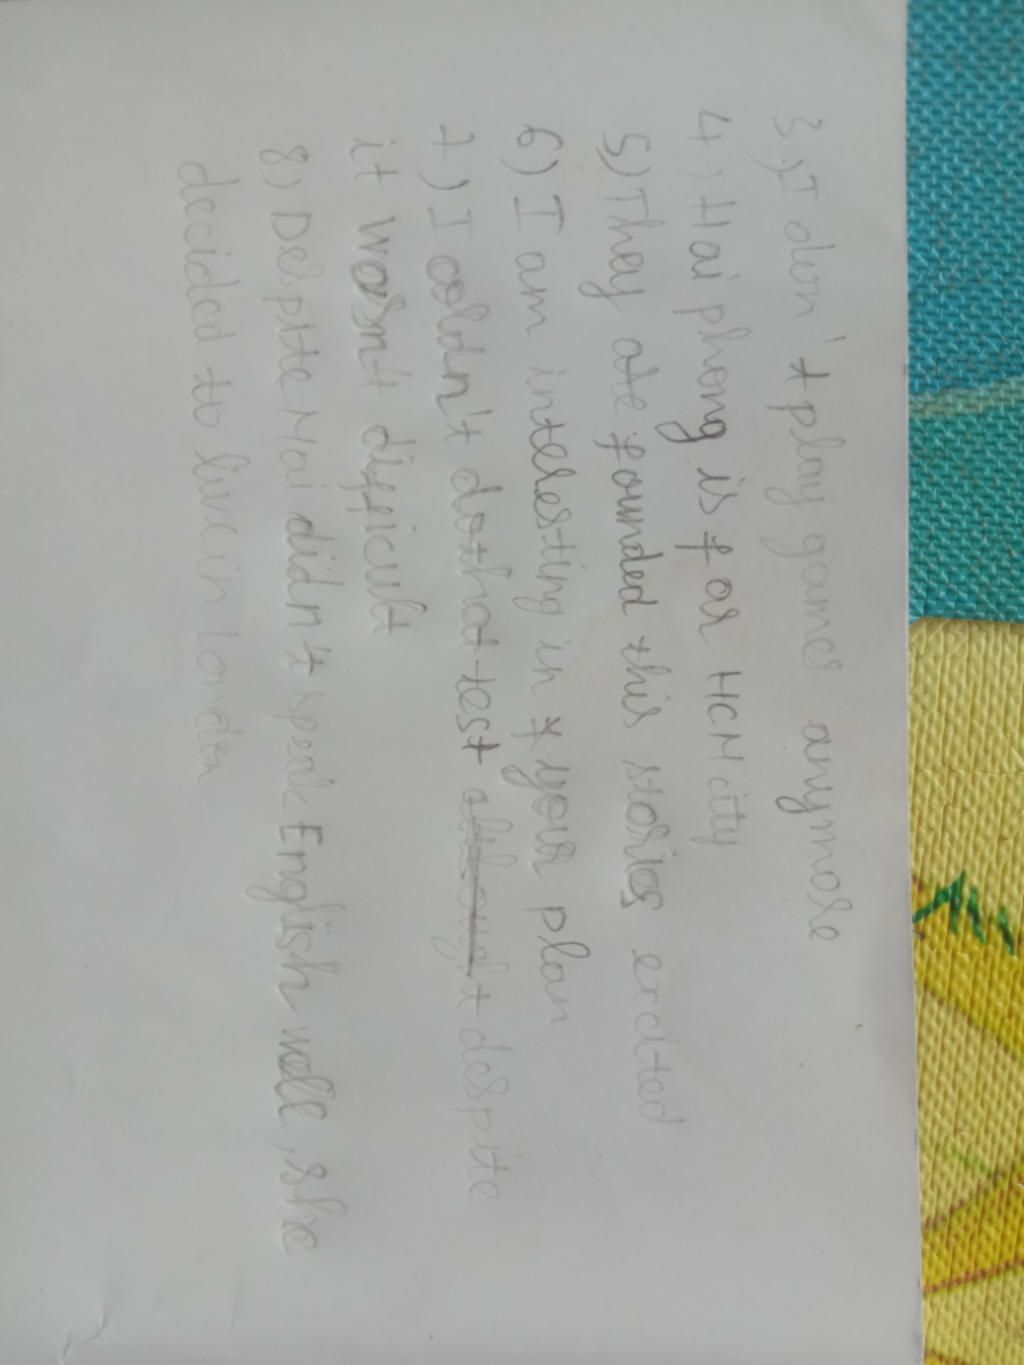 3) I don't play games anymore
4) Hai phong is far HCM city
5) They are founded this stories excited
6) I am interesting in your plan
7) I coldn't do that test althought despite
it wasn't difficult
8) Despite Mai didn't speak English well, she
decided to live in London